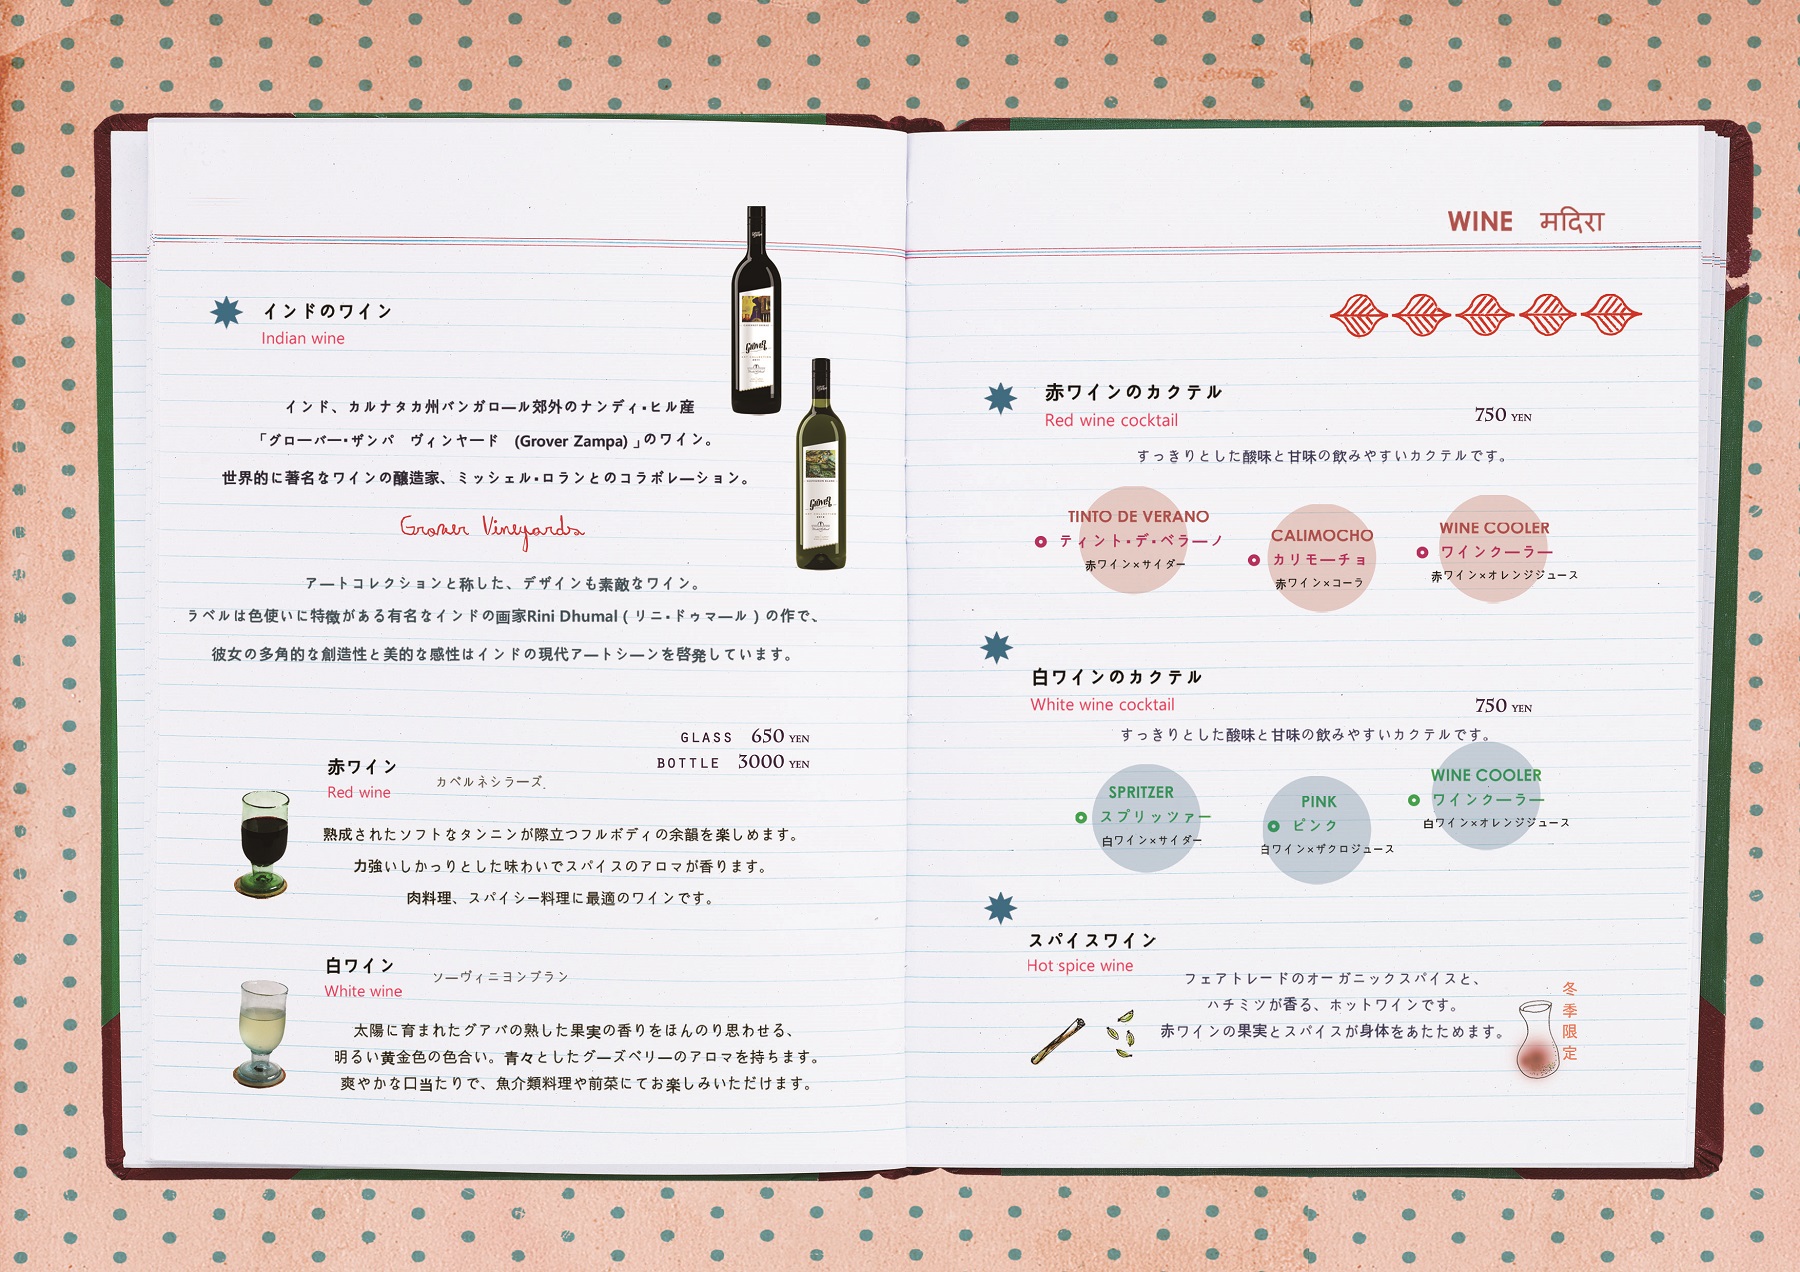 インドのワイン
Indian wine
インド、カルナタカ州バンガロール郊外のナンディ・ヒル産
「グローバー・ザンパ ヴィンヤード (Grover Zampa) 」のワイン。
世界的に著名なワインの醸造家、ミッシェル・ロランとのコラボレーション。
Grover Vineyards
アートコレクションと称した、デザインも素敵なワイン。
ラベルは色使いに特徴がある有名なインドの画家Rini Dhumal ( リニ・ドゥマール ) の作で、
彼女の多角的な創造性と美的な感性はインドの現代アートシーンを啓発しています。
GLASS 650 YEN
BOTTLE 3000 YEN
赤ワイン カベルネシラーズ.
Red wine
熟成されたソフトなタンニンが際立つフルボディの余韻を楽しめます。
力強いしかっりとした味わいでスパイスのアロマが香ります。
肉料理、スパイシー料理に最適のワインです。
白ワイン ソーヴィニヨンブラン
White wine
太陽に育まれたグアバの熟した果実の香りをほんのり思わせる、
明るい黄金色の色合い。青々としたグーズベリーのアロマを持ちます。
爽やかな口当たりで、魚介類料理や前菜にてお楽しみいただけます。
Grover
Grover
WINE मदिरा
赤ワインのカクテル
Red wine cocktail
750 YEN
すっきりとした酸味と甘味の飲みやすいカクテルです。
TINTO DE VERANO
ティント・デ・ベラーノ
赤ワイン×サイダー
CALIMOCHO
カリモーチョ
赤ワイン×コーラ
WINE COOLER
ワインクーラー
赤ワイン×オレンジジュース
白ワインのカクテル
White wine cocktail
750 YEN
すっきりとした酸味と甘味の飲みやすいカクテルです。
SPRITZER
スプリッツァー
白ワイン×サイダー
PINK
ピンク
白ワイン×ザクロジュース
WINE COOLER
ワインクーラー
白ワイン×オレンジジュース
スパイスワイン
Hot spice wine
フェアトレードのオーガニックスパイスと、
ハチミツが香る、ホットワインです。
赤ワインの果実とスパイスが身体をあたためます。
冬季限定